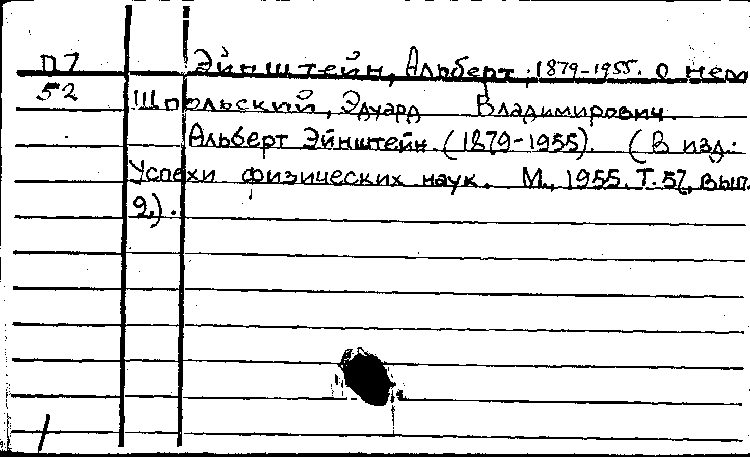 П7 Эйнштейн, Альберт, 1879-1955. О нем
52 Шпольский, Эдуард Владимирович.
Альберт Эйнштейн. (1879-1955). (В изд.:
Успехи физических наук. М., 1955. Т. 57, вып.
2.).